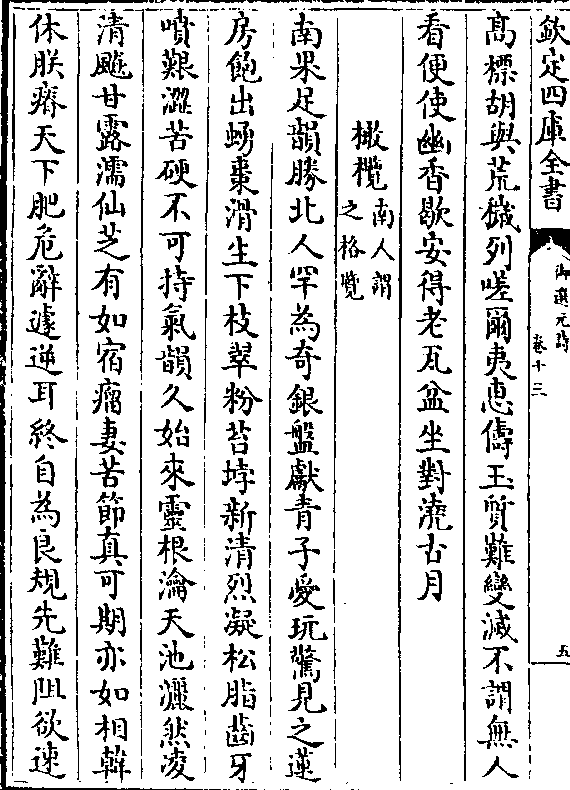 欽定四庫全書
御選元詩
卷十三
五
髙標胡與荒穢列嗟爾夷惠儔玉質難變滅不謂無人
看便使幽香歇安得老瓦盆坐對澆古月
橄欖南人謂之格覽
南果足韻勝北人罕為奇銀盤獻青子愛玩驚見之蓮
房飽出蛹棗滑生下枝翠粉苔㙛新清烈凝松脂齒牙
噴艱澀苦硬不可持氣韻久始來靈根瀹天池灑然凌
清飈甘露濡仙芝有如宿瘤妻苦節真可期亦如相韓
休朕瘠天下肥危辭遽逆耳終自為良規先難阻欲速